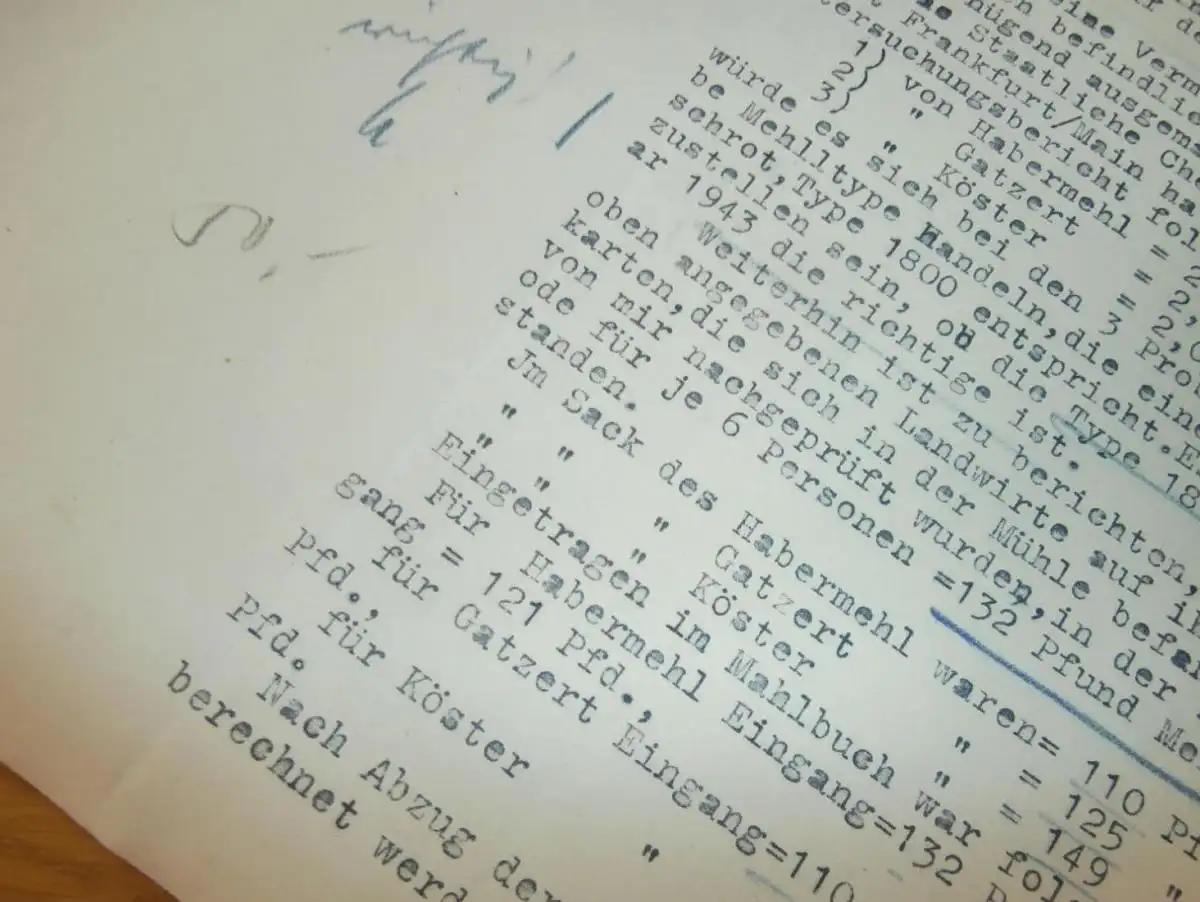 eine Verm
befindlic
nügend ausgem
e Staatliche Che
t Frankfurt/Main ha
tersuchungsbericht fol
1) von Habermehl = 2
2) " Gatzert = 2,
3) " Köster = 2,
würde es sich bei den 3 Pro
be Mehlltype Handeln, die eine
schrot, Type 1800 entspricht. E
zustellen sein, ob die Type 18
ar 1943 die richtige ist.
Weiterhin ist zu berichten,
oben angegebenen Landwirte auf i
karten, die sich in der Mühle befa
von mir nachgeprüft wurden, in der
ode für je 6 Personen =132 Pfund Me
standen.
Jm Sack des Habermehl waren= 110 Pf
" " " Gatzert " = 125
" " " Köster " = 149 "
Eingetragen im Mahlbuch war fol
Für Habermehl Eingang=132 P
gang = 121 Pfd.,
für Gatzert Eingang=110
Pfd.,
für Köster "
Pfd.
Nach Abzug der
berechnet werd
50,-